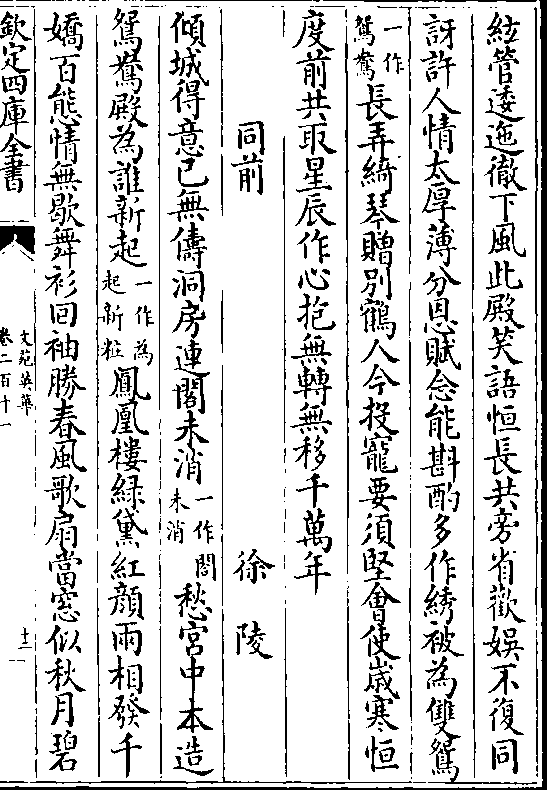 絃管逶迤徹下風此殿笑語恒長共旁省歡娛不復同
訝許人情太厚薄分恩賦念能斟酌多作繡被為雙鴛
一作鴛鴦長弄綺琴贈別鶴人今投寵要須堅會使歲寒恒
度前共取星辰作心抱無轉無移千萬年
同前 徐陵
傾城得意已無儔洞房連閣未消一作閣未消愁宮中本造
鴛鴦殿為誰新起一作為起新粧鳳凰樓綠黛紅顏兩相發千
嬌百態情無歇舞衫回袖勝春風歌扇當窓似秋月碧
欽定四庫全書
文苑英華
卷二百十一
十二